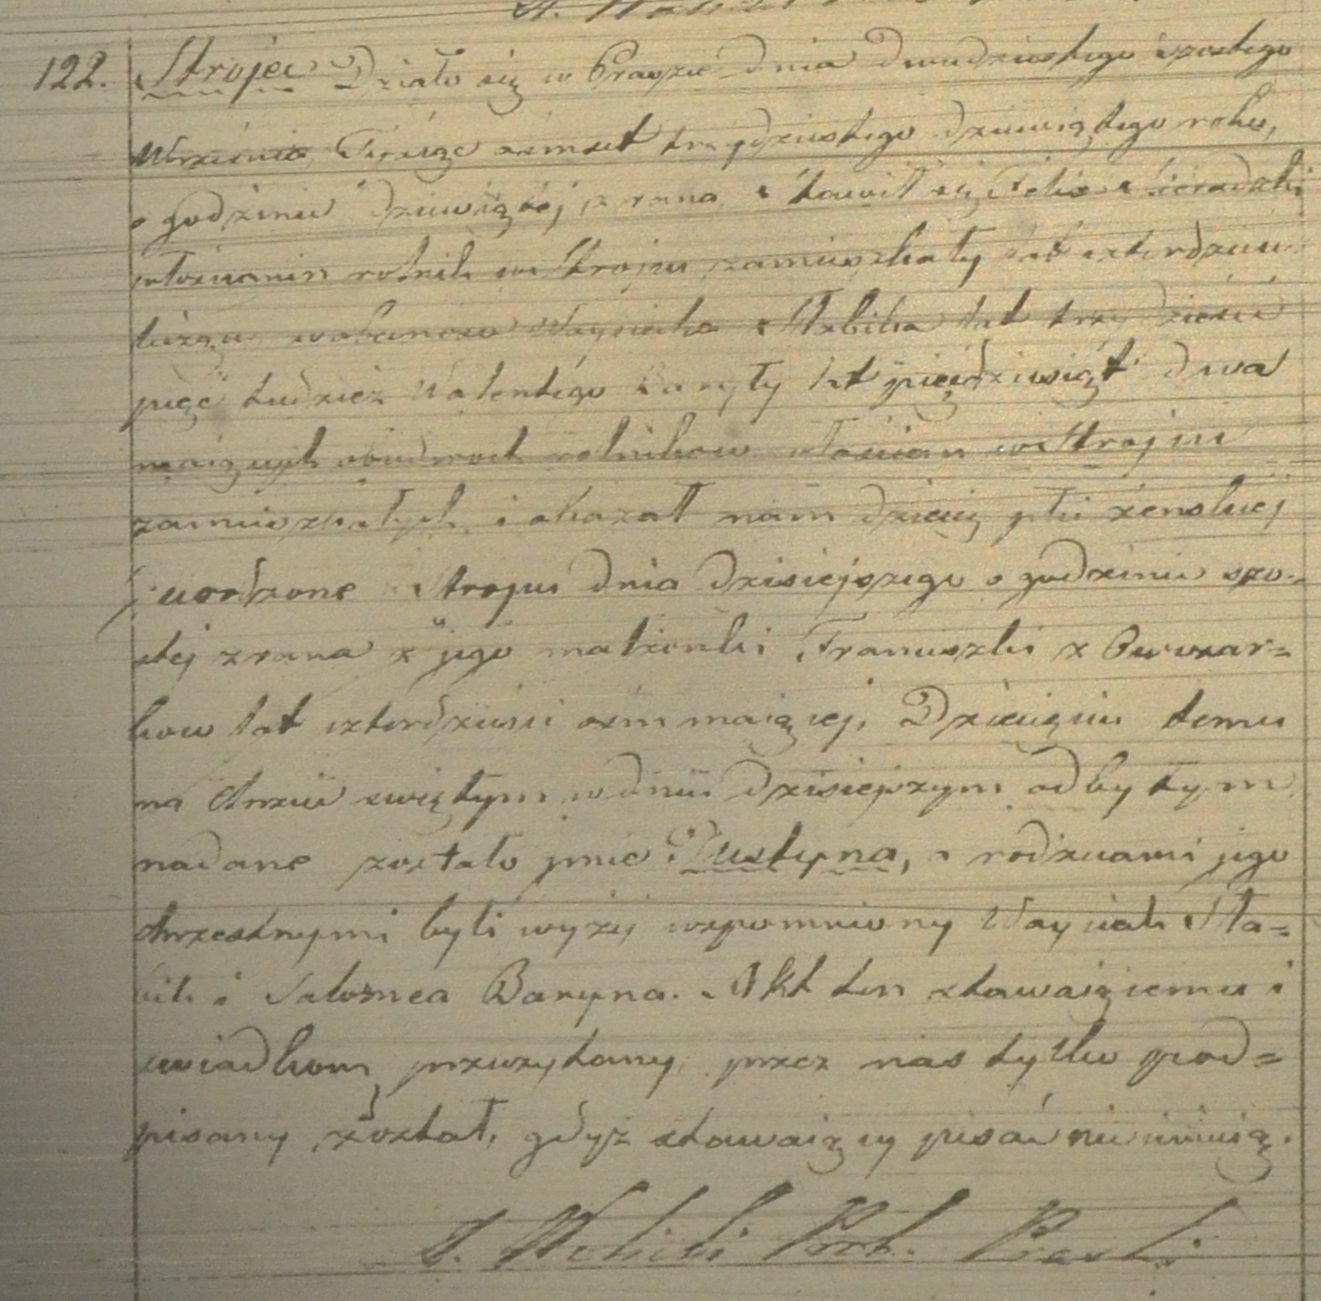 122. Strojec Działo się w Praszce dnia dwudziestego szostego
Września Tysiąc osmset trzydziestego dziewiątego roku,
o godzinie dziewiątej z rana stawił się Felix Sieradzki
włościanin rolnik w Strojcu zamieszkały lat czterdzieści
liczący w obecności Woyciecha lat trzydzieści
pięć tudzież Walentego lat pięćdziesiąt dwa
maiących obudwoch rolnikow włościan w Strojcu
zamieszkałych i okazał nam dziecię płci żenskiej
urodzone Strojcu dnia dzisiejszego o godzinie szo-
stej z rana z jego małżonki Franciszki z Owczar=
kow lat czterdzieści osm maiącej. Dziecięciu temu
na Chrzcie świętym w dniu dzisiejszym odbytym
nadane zostało jmie Justyna, a rodzicami jego
chrzestnymi byli wyżej wspomniony Woyciech Sta=
bik i Salomea Baryna. Akt ten stawaiącemu i
swiadkom przeczytany, przez nas tylko pod=
pisany został, gdyż stawaiący pisać nie umieią.